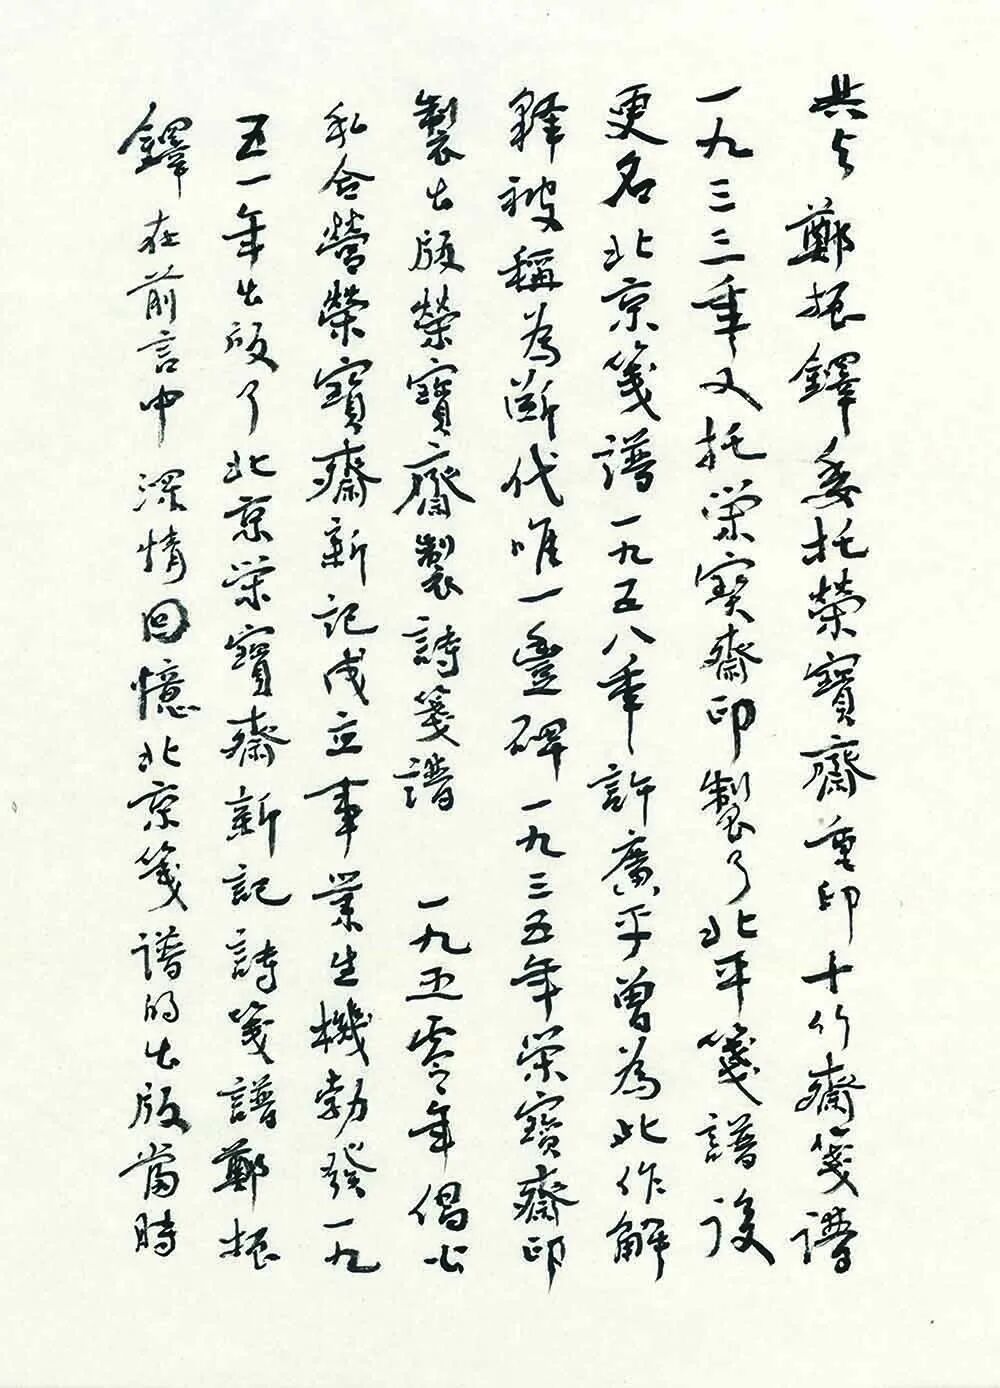 共与鄭振鐸委托榮寶齋重印十竹齋箋譜
一九三三年又托榮寶齋印製了北平箋譜後
更名北京箋譜一九五八年許廣平曾為此作解
釋被稱為斷代唯一豐碑一九三五年榮寶齋印
製出版榮寶齋製詩箋譜一九五零年倡公
私合營榮寶齋新記成立事業生機勃發一九
五一年出版了北京榮寶齋新記詩箋譜鄭振
鐸在前言中深情回憶北京箋譜的出版當時